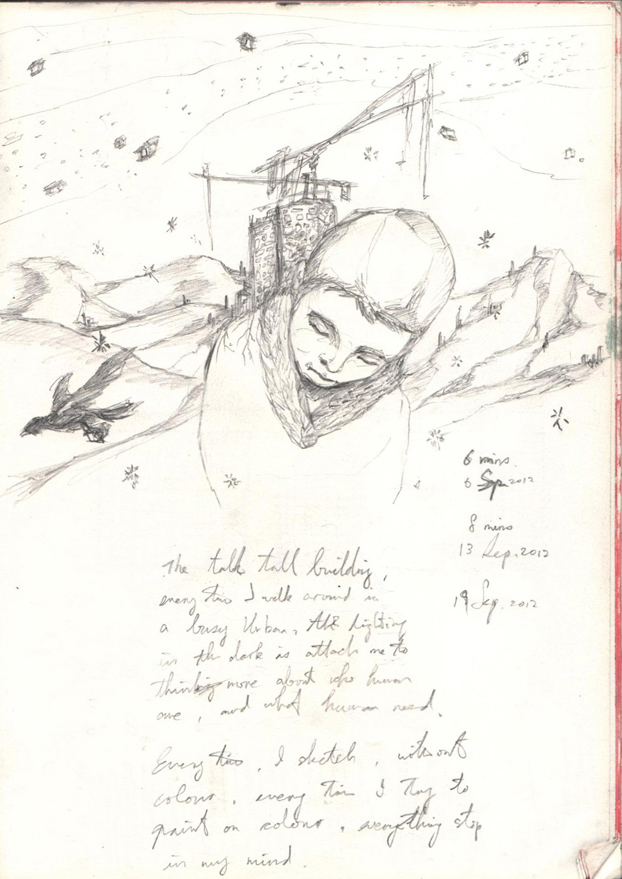 6 mins.
6 Sep 2012
8 mins
13 Sep. 2012
19 Sep. 2012
The talk tall building,
every time I walk around in
a busy Urban, the lighting
in the dark is attach me to
thinking more about who human
are, and what human need.
Every time, I sketch, without
colour, every time I try to
paint on colour, everything stop
in my mind.